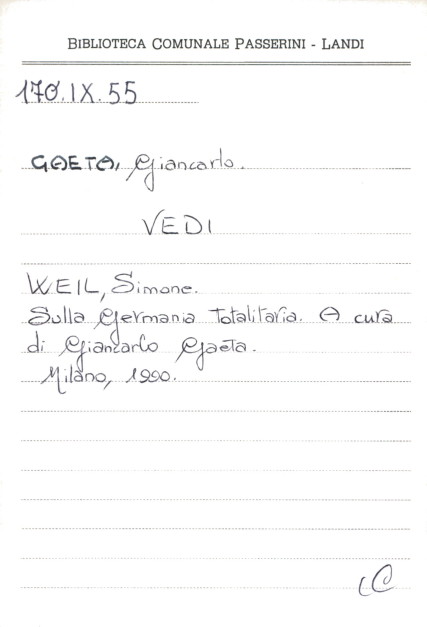 BIBLIOTECA COMUNALE PASSERINI - LANDI
170.IX.55
GAETA, Giancarlo.
VEDI
WEIL, Simone.
Sulla Germania Totalitaria. A cura
di Giancarlo Gaeta.
Milano, 1990.
LC